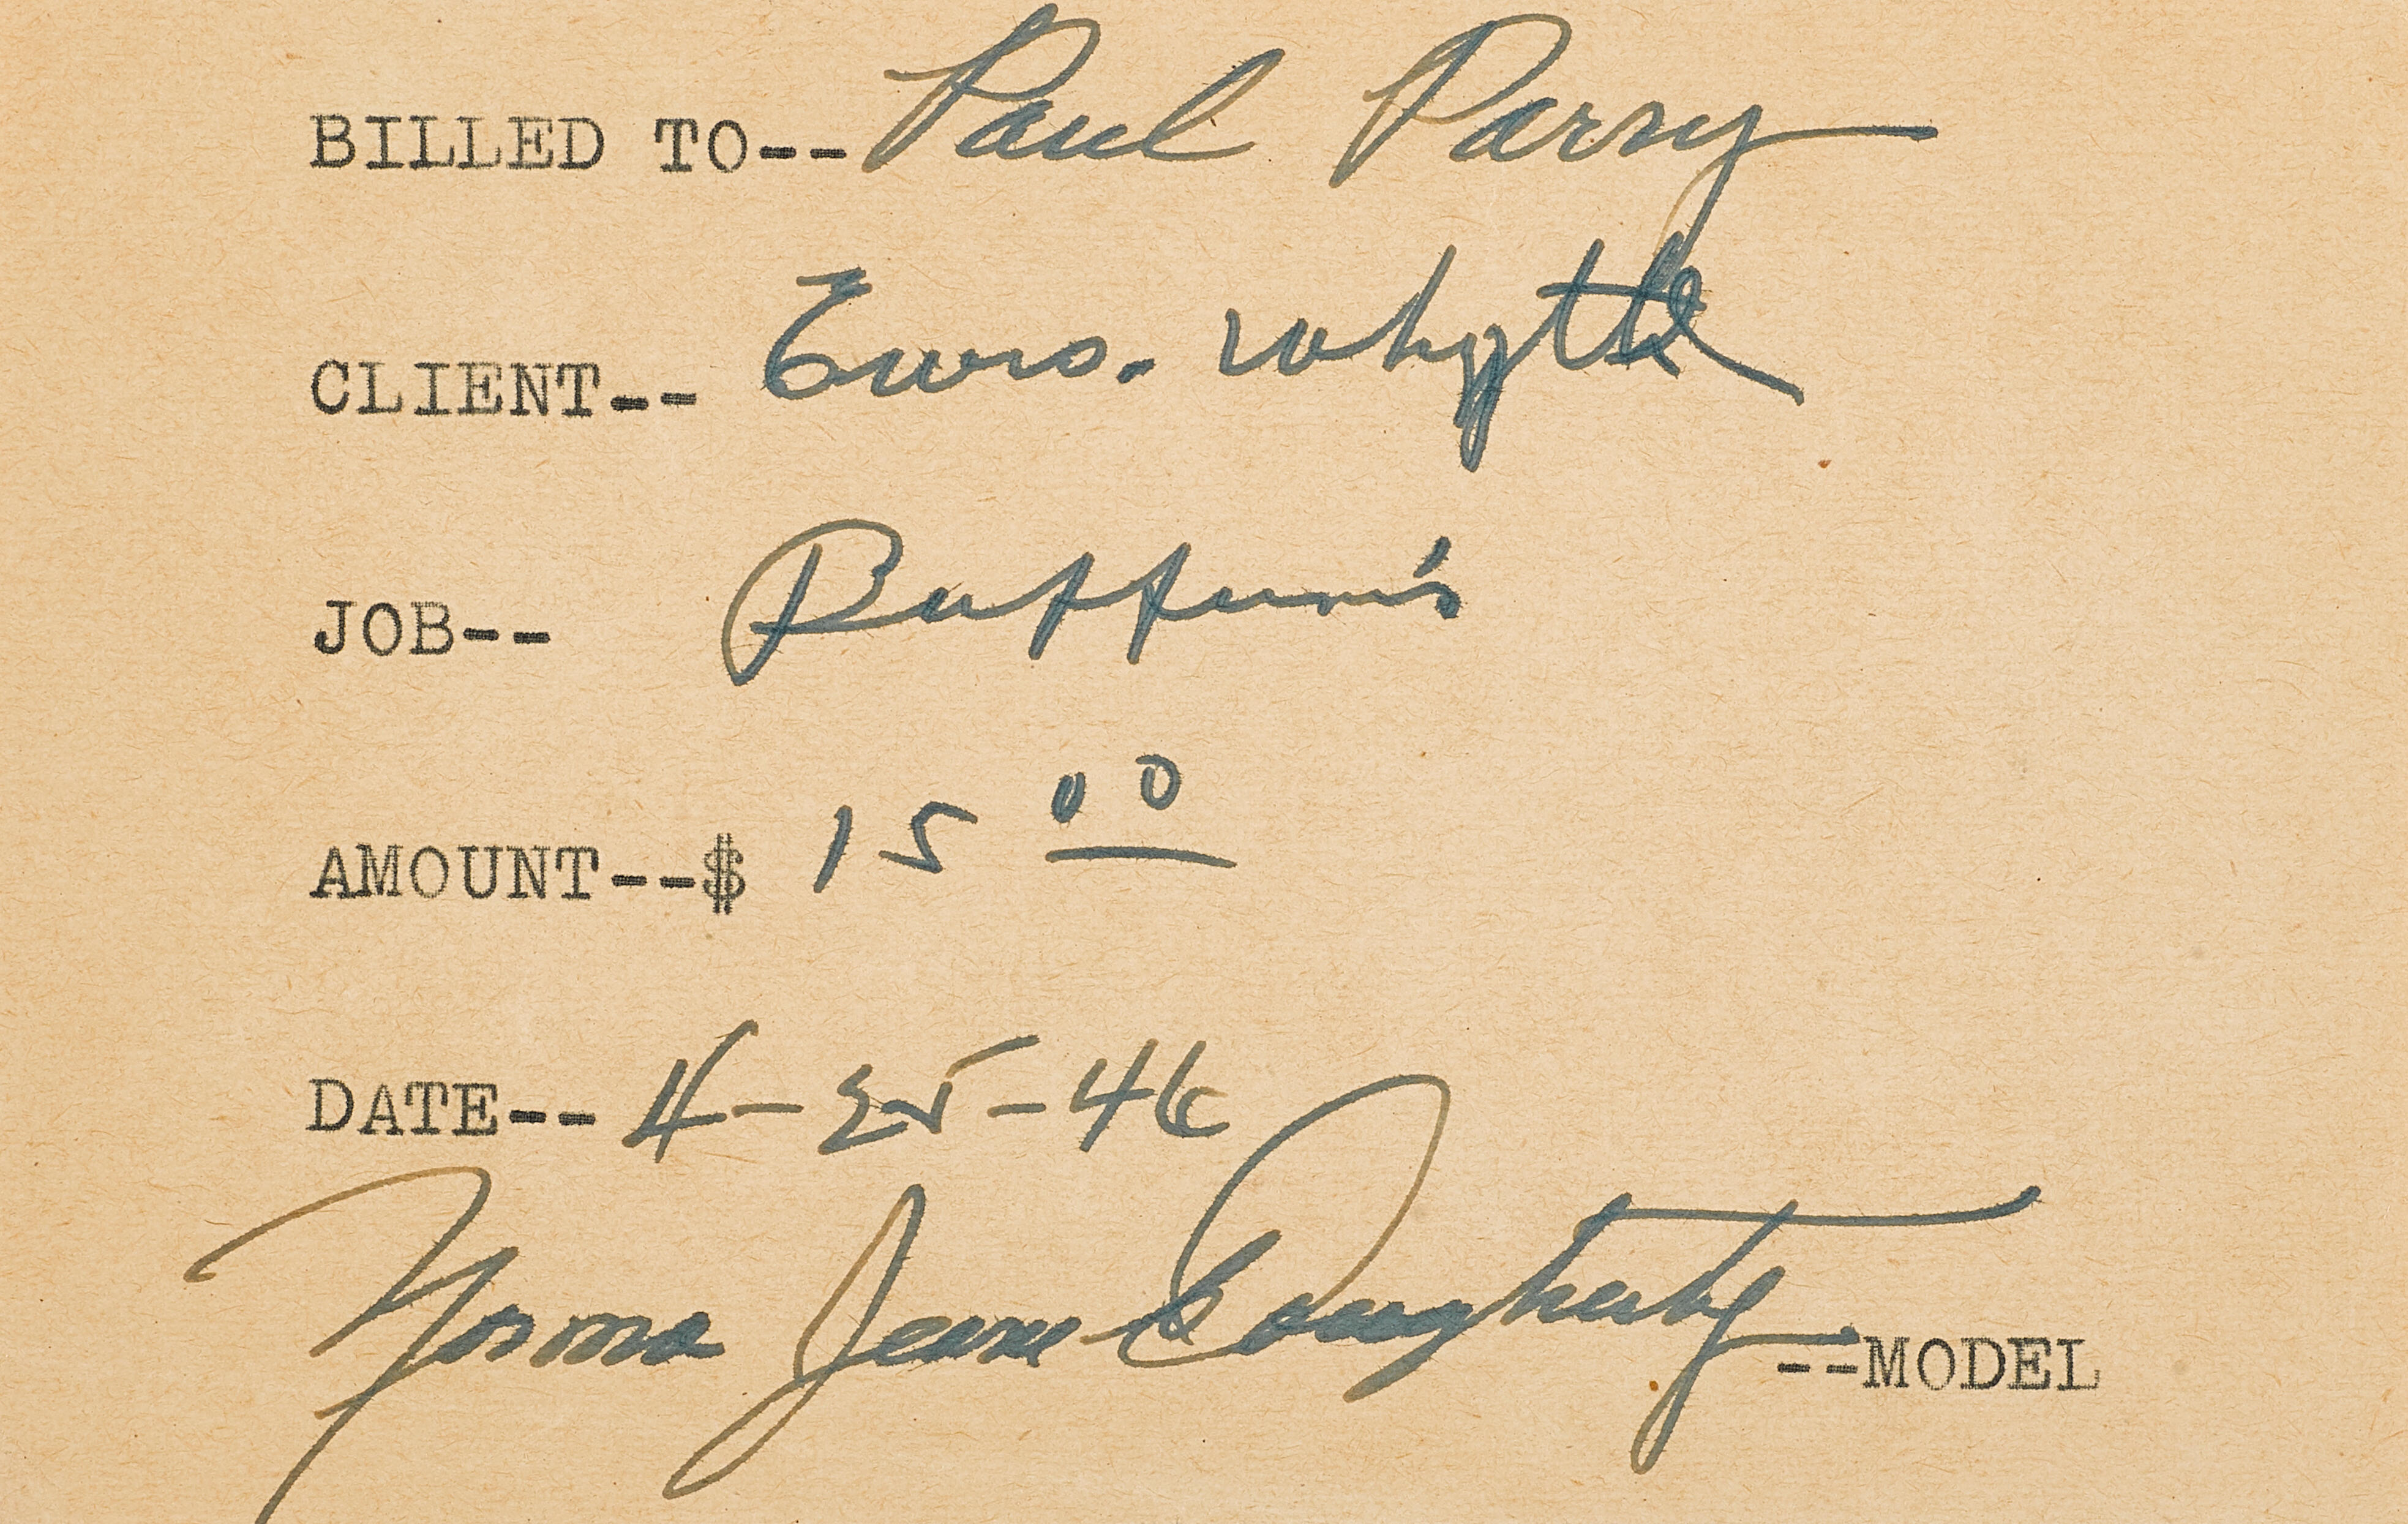 BILLED TO-- Paul Parry
CLIENT-- Whytte
JOB-- Buffum's
AMOUNT--$ 15 00
DATE-- 4-25-46
Norma Jeane Dougherty --MODEL